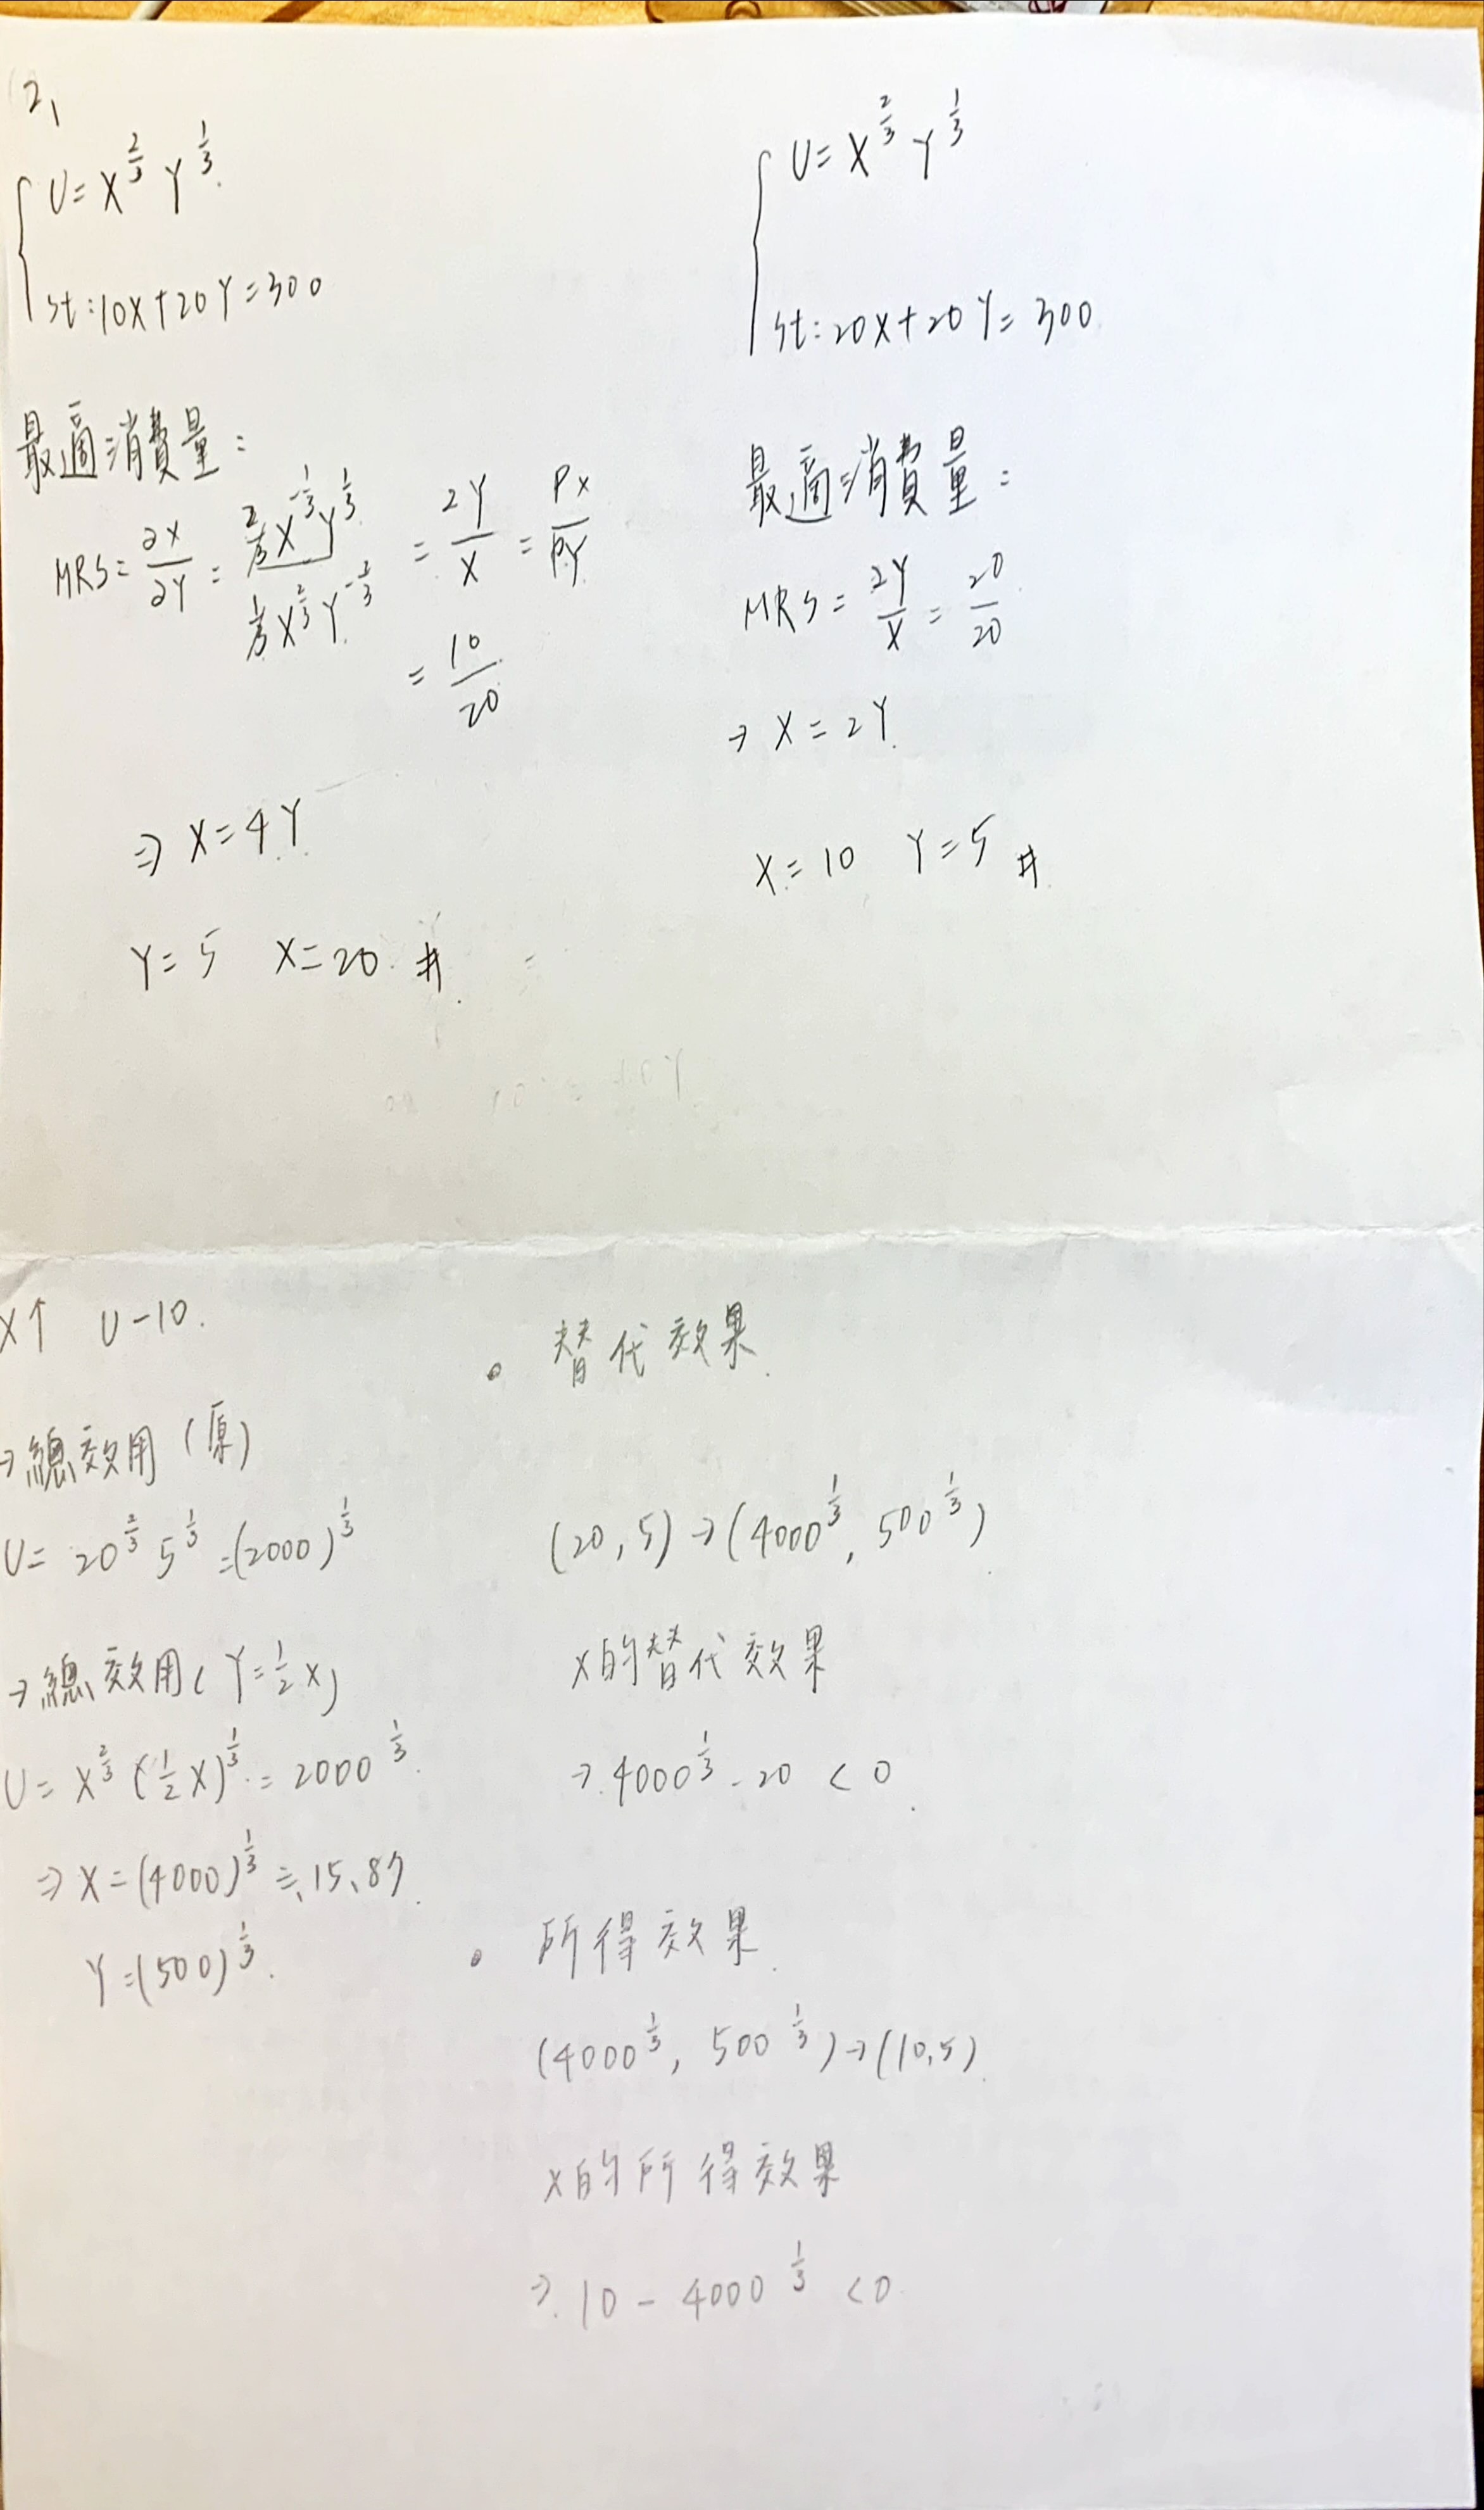 2,
U = X^{2/3} Y^{1/3}
st: 10X + 20Y = 300
最適消費量:
MRS = ∂X/∂Y = (2/3 X^{-1/3} Y^{1/3})/(1/3 X^{2/3} Y^{-2/3}) = 2Y/X = Px/Py
= 10/20
⇒ X = 4Y
Y = 5 X = 20 #
U = X^{2/3} Y^{1/3}
st: 20X + 20Y = 300
最適消費量:
MRS = 2Y/X = 20/20
→ X = 2Y
X = 10 Y = 5 #
X↑ U-10.
→ 總效用(原)
U = 20^{2/3} 5^{1/3} = (2000)^{1/3}
→ 總效用(Y = 1/2 X)
U = X^{2/3} (1/2 X)^{1/3} = 2000^{1/3}
⇒ X = (4000)^{1/3} ≒ 15.87
Y = (500)^{1/3}
。替代效果
(20, 5) → (4000^{1/3}, 500^{1/3})
X的替代效果
⇒ 4000^{1/3} - 20 < 0
。所得效果
(4000^{1/3}, 500^{1/3}) → (10, 5)
X的所得效果
⇒ 10 - 4000^{1/3} < 0